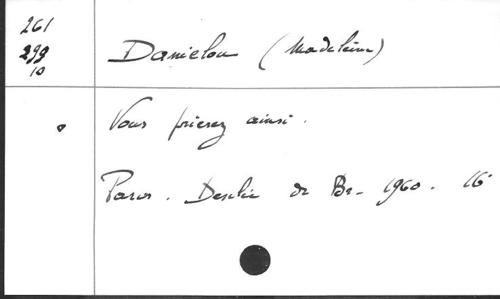 261
299
10
Danielou (Madeleine)
Vous prierez ainsi.
Paris. Desclée de Br- 1960. 16°